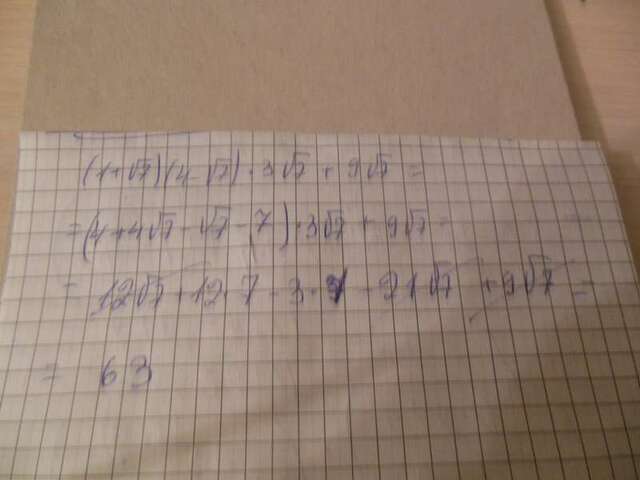 (1+√7)(4-√7)·3√7+9√7=
=(4+4√7-√7-7)·3√7+9√7=
=12√7+12·7-3·7-21√7+9√7=
=63